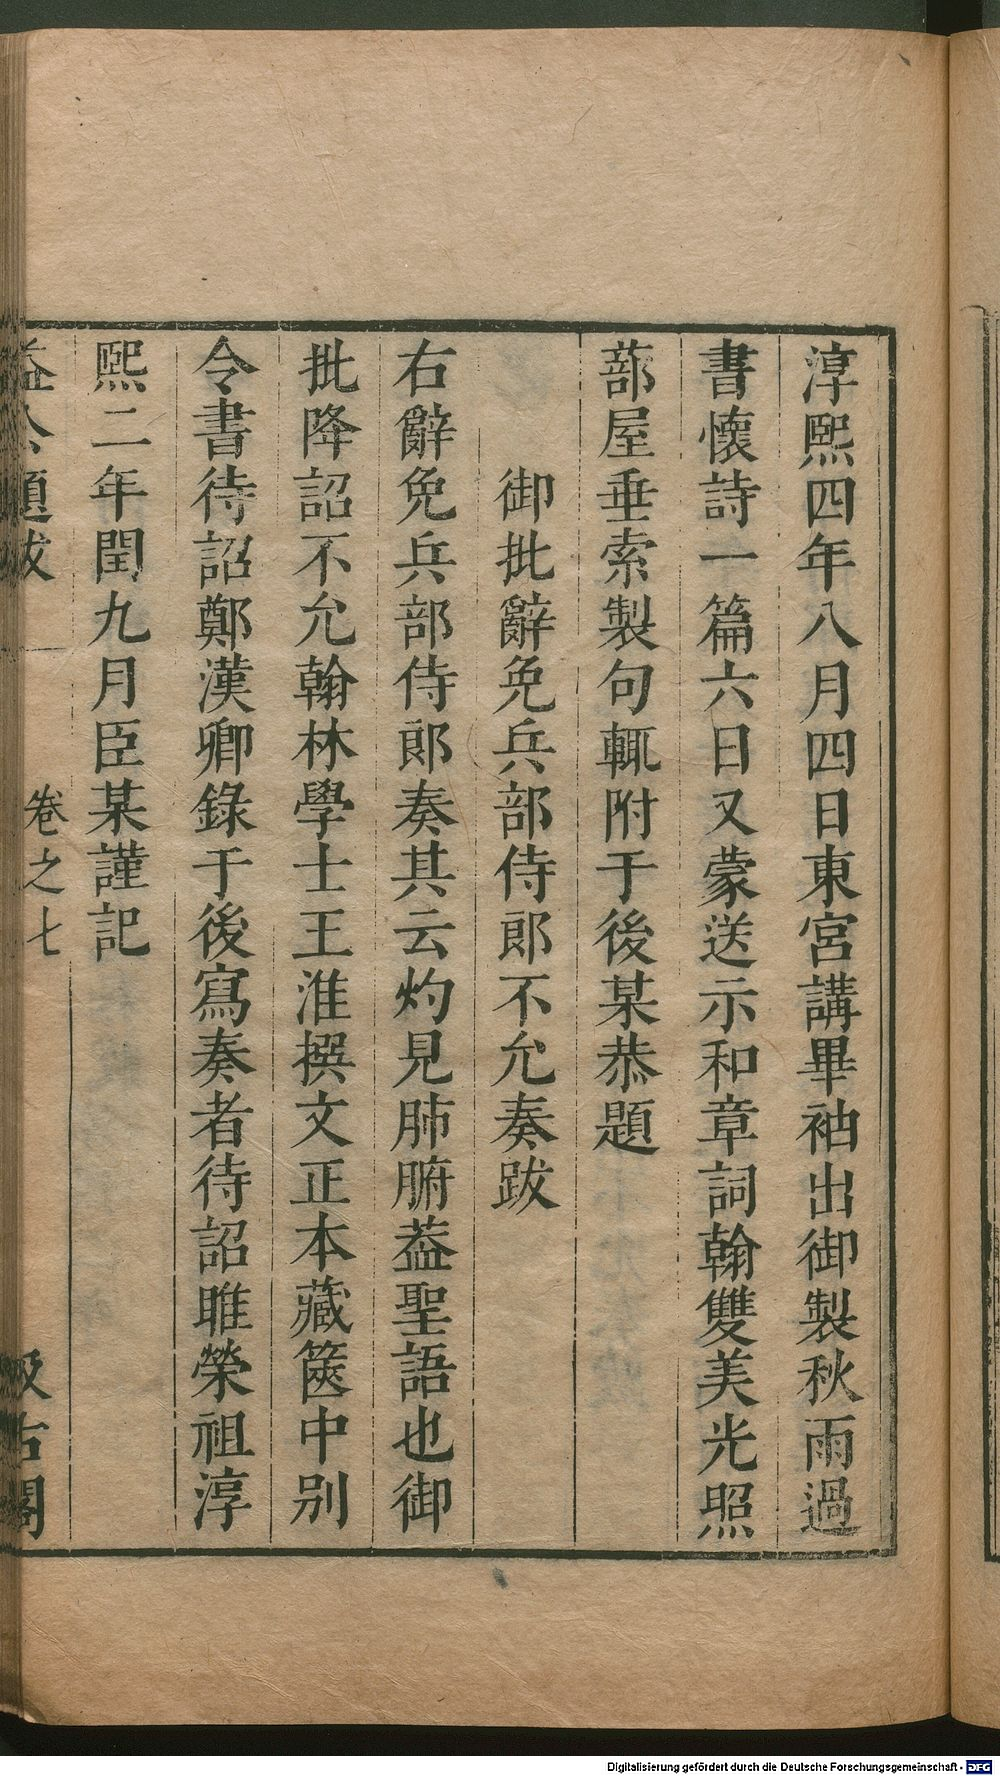 淳熙四年八月四日東宮講畢袖出御製秋雨過
書懷詩一篇六日又蒙送示和章詞翰雙美光照
蔀屋垂索製句輒附于後某恭題
御批辭免兵部侍郎不允奏跋
右辭免兵部侍郎奏其云灼見肺腑葢聖語也御
批降詔不允翰林學士王淮撰文正本藏篋中别
令書待詔鄭漢卿錄于後寫奏者待詔睢榮祖淳
熙二年閏九月臣某謹記
益公題跋 卷之七 汲古閣
Digitalisierung gefördert durch die Deutsche Forschungsgemeinschaft - DFG